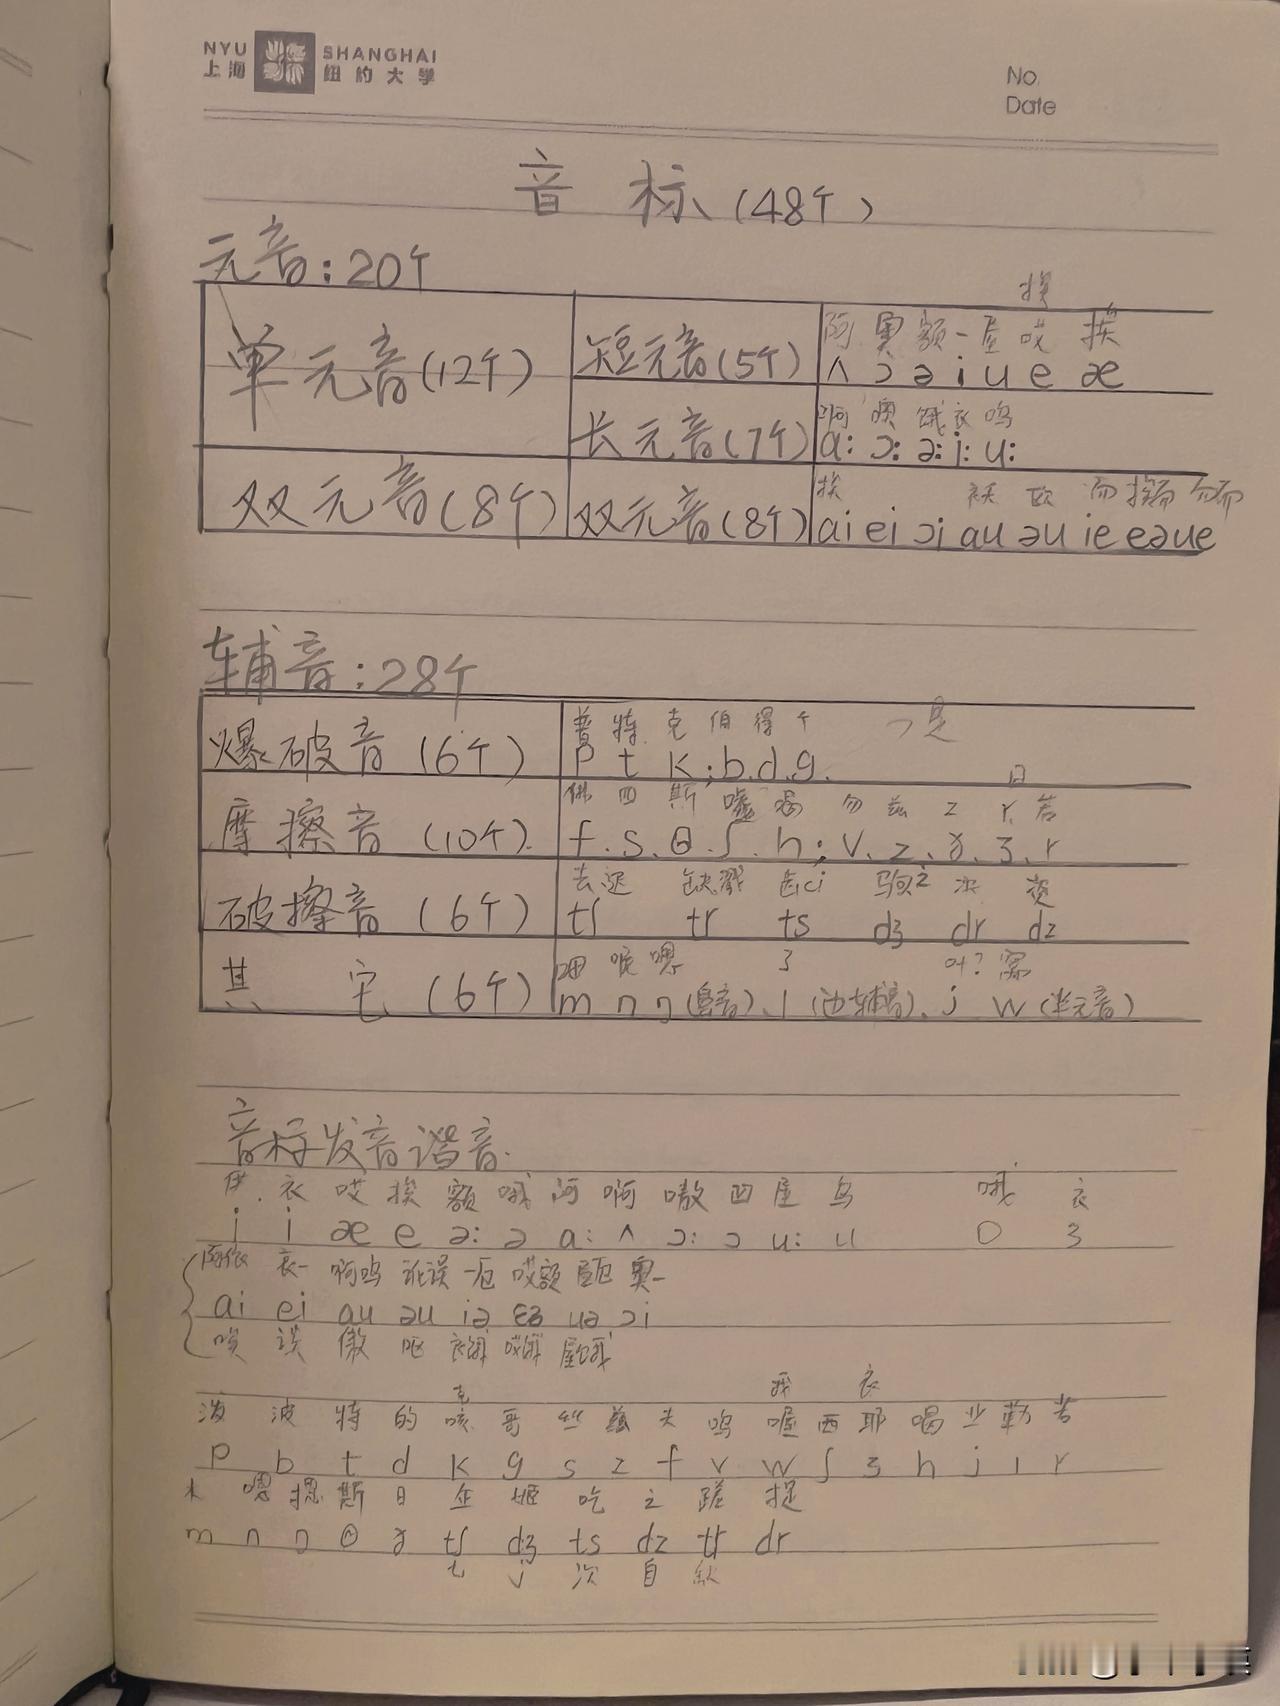 NYU SHANGHAI
上海 紐約大學
No.
Date
音标(48个)
元音:20个
挨
阿 奥 额 一 屋 哎 挨
单元音(12个) 短元音(5个) ʌ ɔ ə i u e æ
啊 噢 饿 衣 呜
长元音(7个) a: ɔ: ə: i: u:
挨 袄 欧
双元音(8个) 双元音(8个) ai ei ɔi au əu ie eə ue
辅音:28个
普 特 克 伯 得 个
爆破音(6个) p t k; b.d.g.
日
佛 四 斯 嘘 喝 勿 兹 z r. 若
摩擦音(10个). f.s.θ.ʃ.h; v.z.ð.ʒ.r
去迟 缺戳 ci 次 资
破擦音(6个) tʃ tr ts dʒ dr dz
嗯 了 叶? 窝
其它(6个) m n ŋ(鼻音)、l(边辅音)、j w(半元音)
音标发音谐音.
伊.衣 哎 挨 额 哦 阿 啊 嗷 凹 屋 乌 哦 衣
i i æ e ə: ə a: ʌ ɔ: ɔ u: u O 3
阿依 衣一 啊呜 哎额 奥一
ai ei au əu iə ɛə uə ɔi
唉 诶 傲 呕
克 我 衣
泼 波 特 的 咳 哥 丝 兹 夫 呜 喔 西 耶 喝 业 勒 若
p b t d k g s z f v w ʃ ʒ h j l r
嗯 摁 斯 日 企 姬 吃 之 蹉 捉
m n ŋ θ ð tʃ dʒ ts dz tr dr
t j 次 自